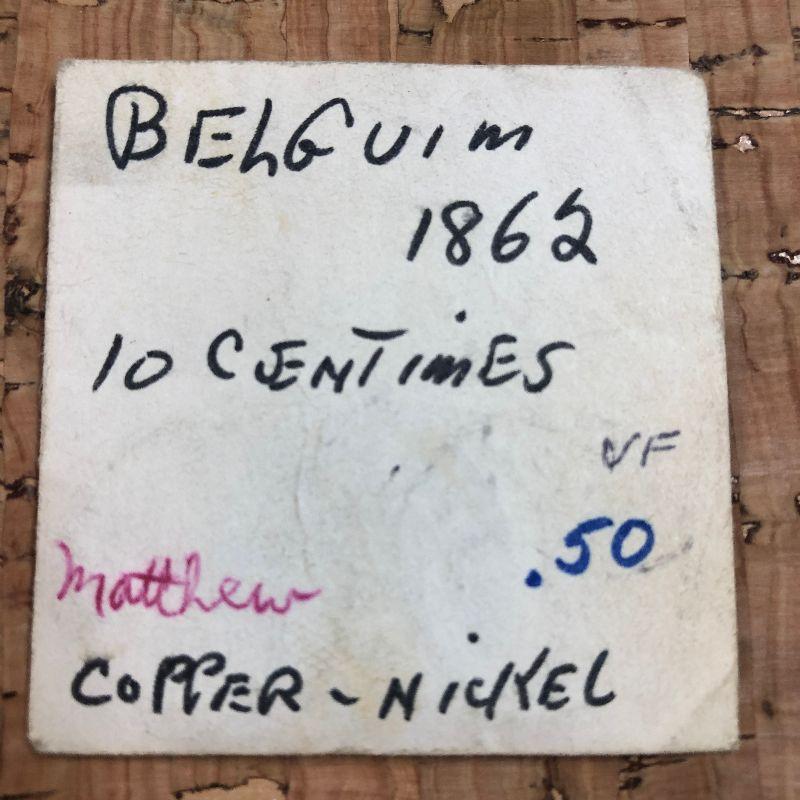 BELGUIM
1862
10 CENTIMES
VF
.50
Matthew
COPPER-NICKEL